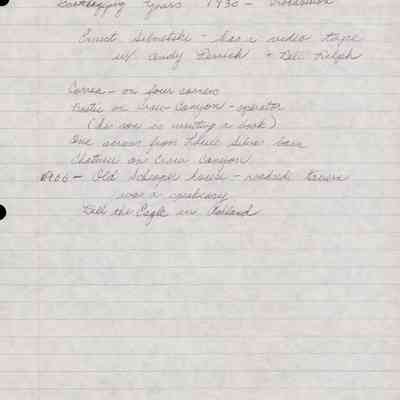 Bootlegging Years 1930 -
Ernest - has a video tape
w/ Andy Derrick + Bill Ralph
Correa - on four corners
Rustic on Crow Canyon - operator
(his son is writing a book)
One across from Louie Silvas barn
Chateau on Crow Canyon
1906 - Old house - roadside tavern
was a speakeasy
Bill the Eagle in Oakland